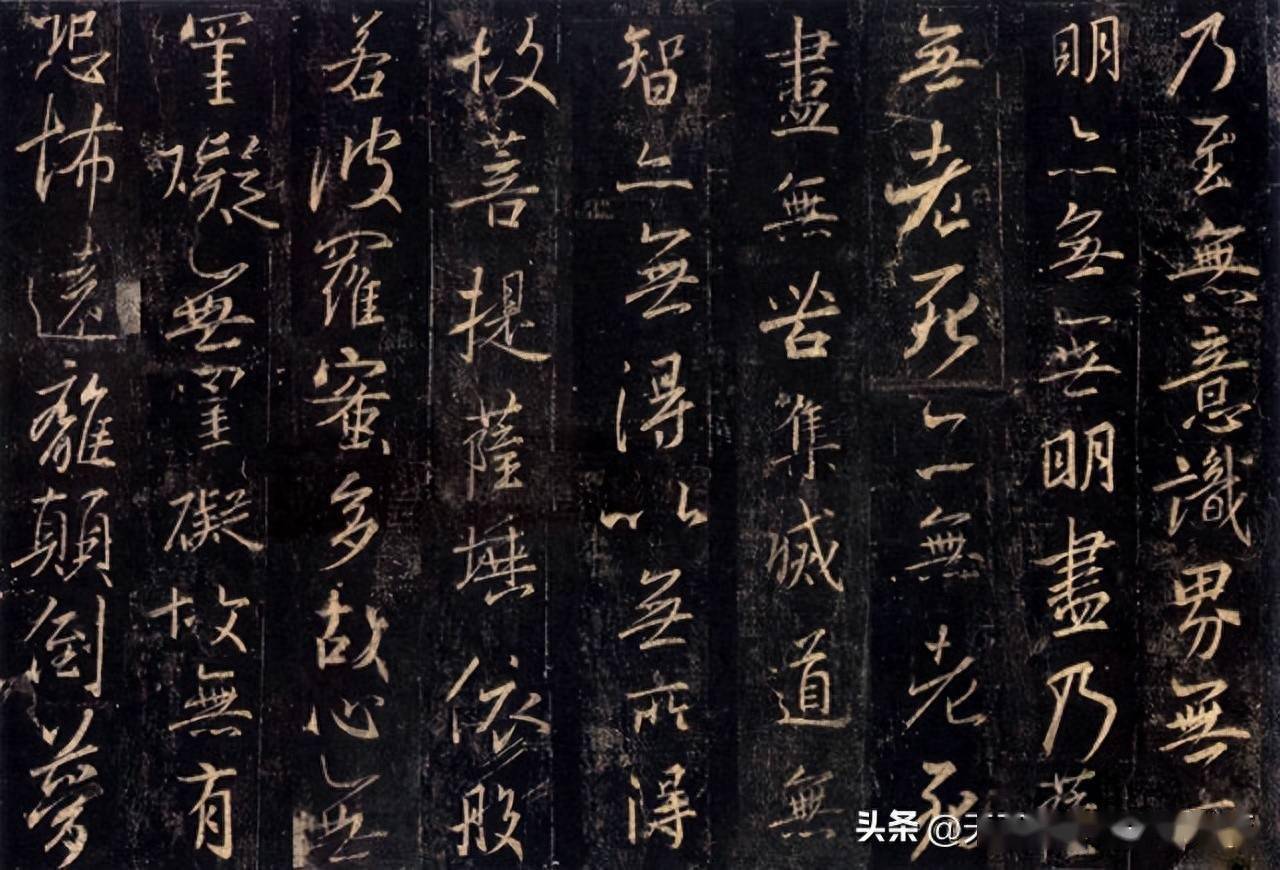 乃至無意識界無
明亦無無明盡乃
無老死亦無老死
盡無苦集滅道無
智亦無得以無所得
故菩提薩埵依般
若波羅蜜多故心無
罣礙無罣礙故無有
恐怖遠離顛倒夢
头条 @